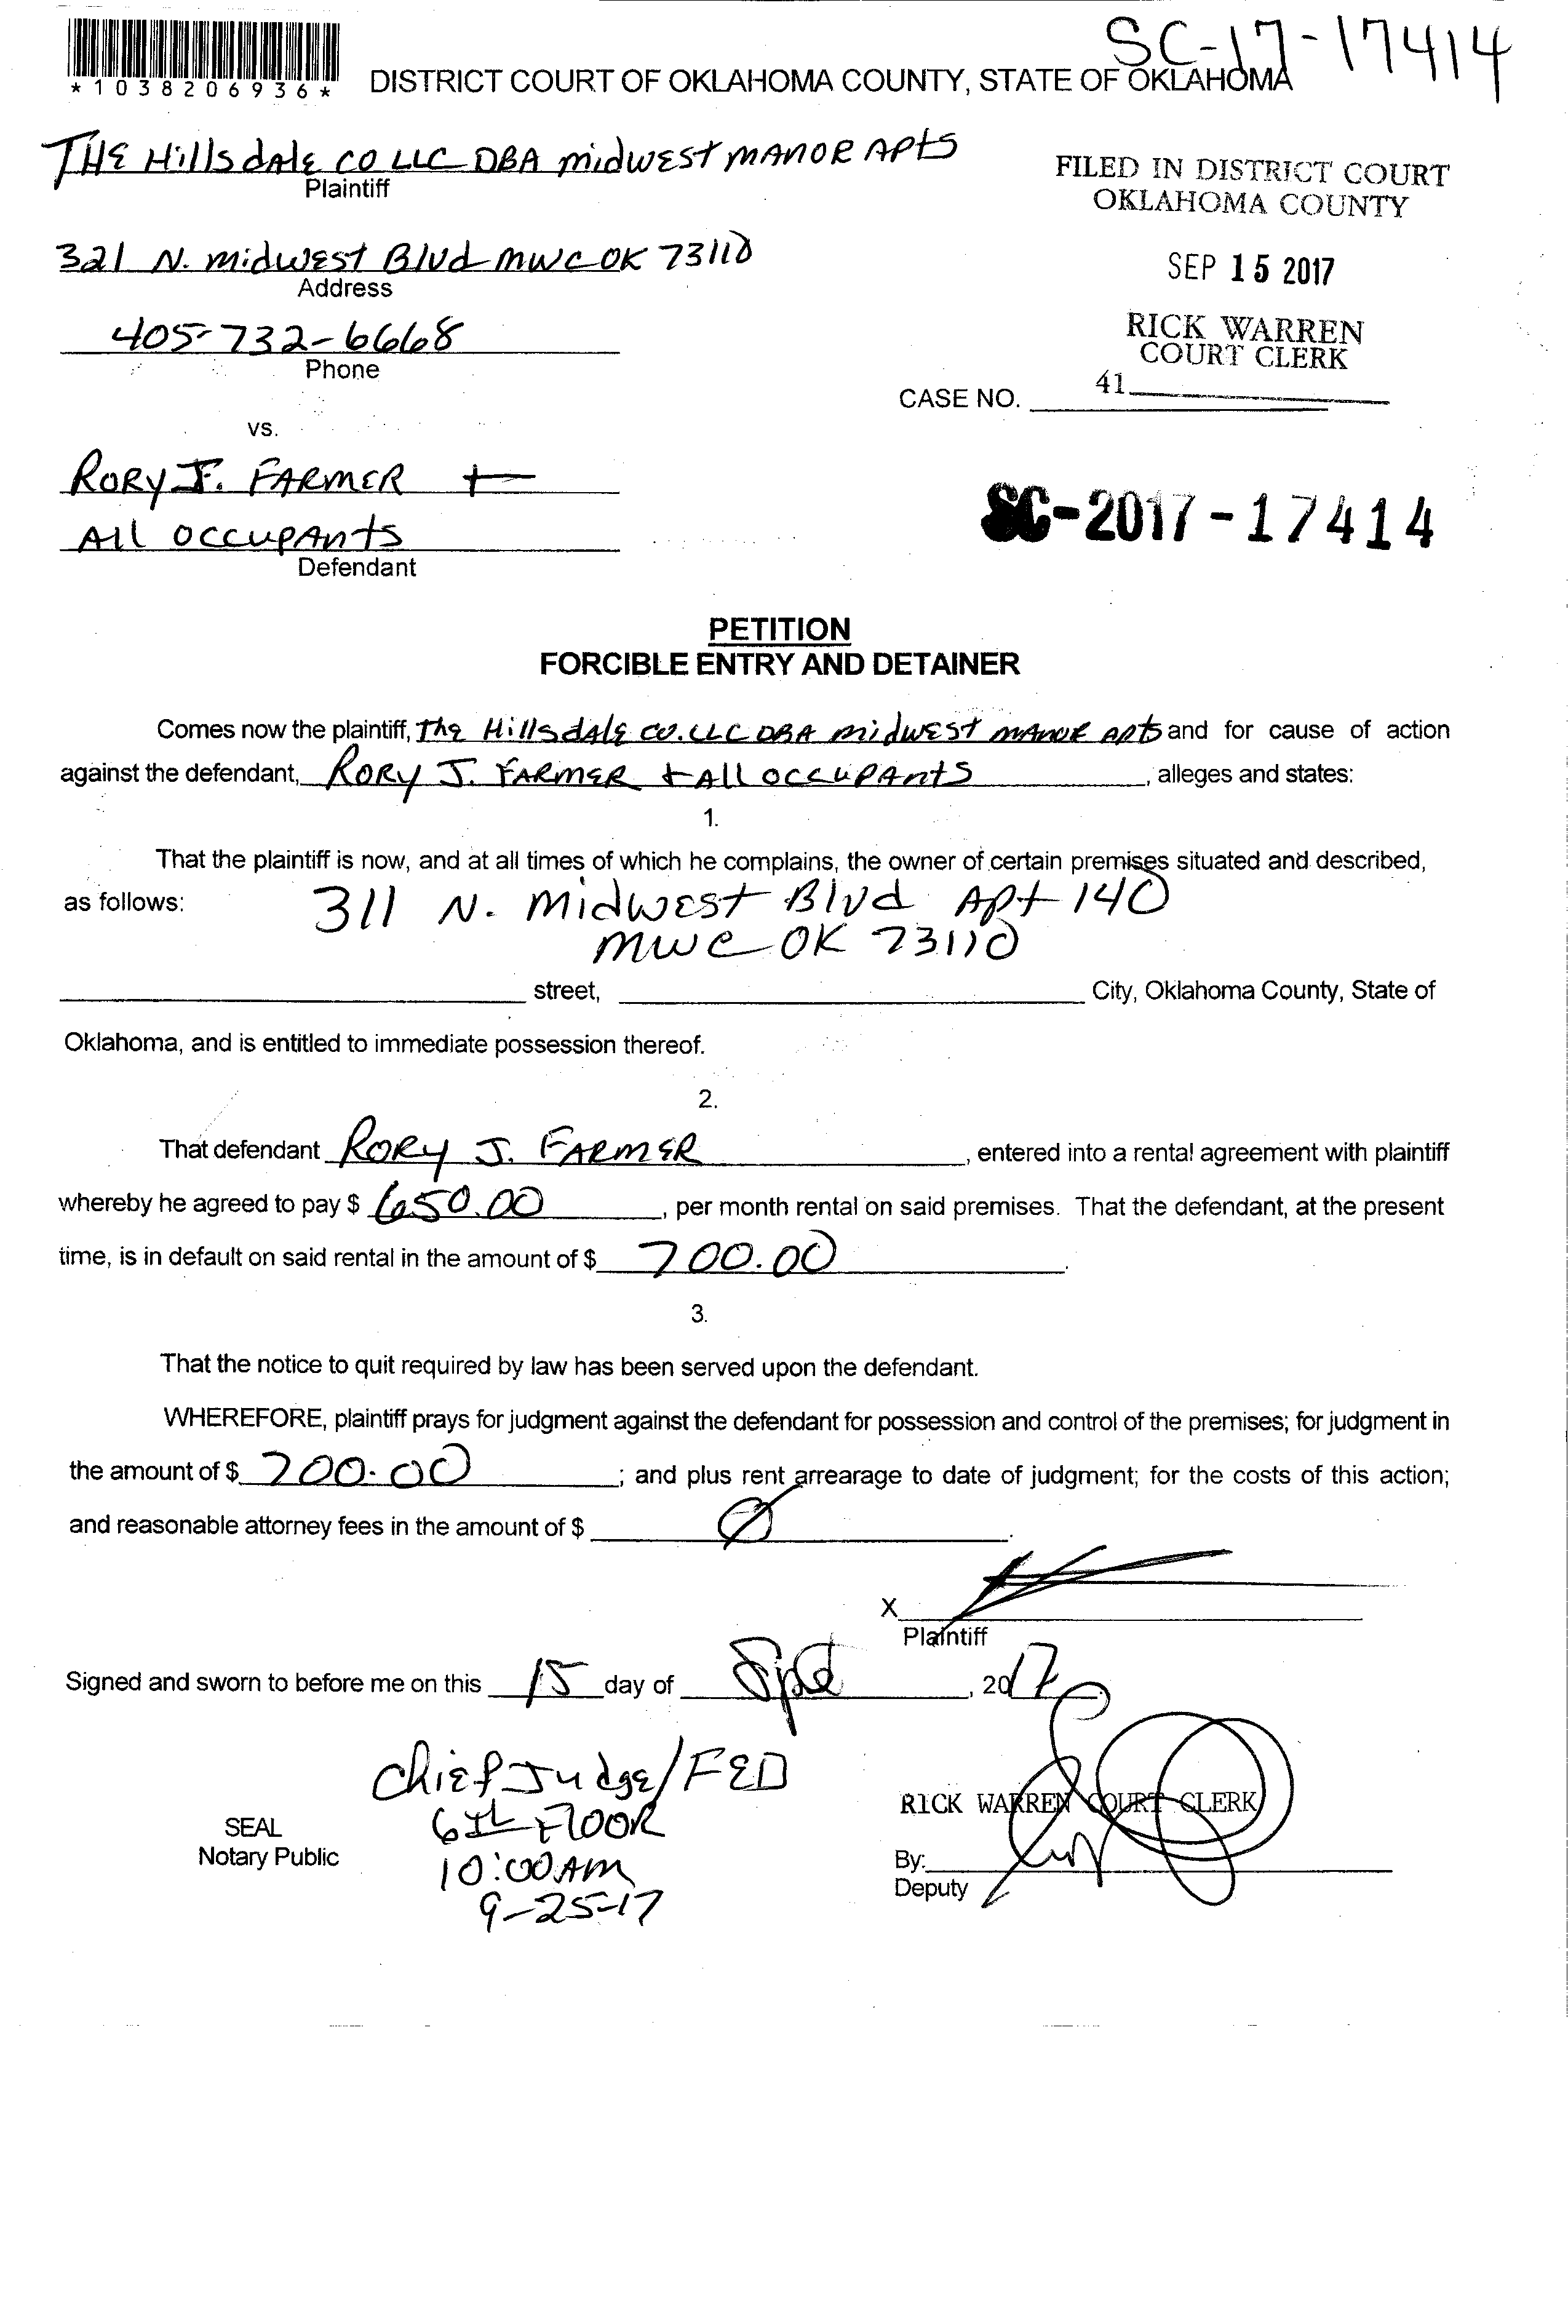 SC-17-17414
*1038206936*
DISTRICT COURT OF OKLAHOMA COUNTY, STATE OF OKLAHOMA
THE Hillsdale CO LLC DBA midwest MANOR APts
Plaintiff
FILED IN DISTRICT COURT
OKLAHOMA COUNTY
321 N. Midwest Blvd MWC OK 73110
Address
SEP 15 2017
405-732-6668
Phone
RICK WARREN
COURT CLERK
41
CASE NO.
vs.
RORY J. FARMER +
All OCCUPAntS
Defendant
SC-2017-17414
PETITION
FORCIBLE ENTRY AND DETAINER
Comes now the plaintiff, The Hillsdale CO. LLC DBA midwest MANOR APts and for cause of action
against the defendant, RORY J. FARMER + All OCCUPAntS, alleges and states:
1.
That the plaintiff is now, and at all times of which he complains, the owner of certain premises situated and described,
as follows: 311 N. Midwest Blvd APt 140
MWC OK 73110
street, City, Oklahoma County, State of
Oklahoma, and is entitled to immediate possession thereof.
2.
That defendant RORY J. FARMER, entered into a rental agreement with plaintiff
whereby he agreed to pay $ 650.00, per month rental on said premises. That the defendant, at the present
time, is in default on said rental in the amount of $ 700.00.
3.
That the notice to quit required by law has been served upon the defendant.
WHEREFORE, plaintiff prays for judgment against the defendant for possession and control of the premises; for judgment in
the amount of $ 700.00; and plus rent arrearage to date of judgment; for the costs of this action;
and reasonable attorney fees in the amount of $ Ø.
X
Plaintiff
Signed and sworn to before me on this 15 day of Spt, 2017.
Chief Judge/FED
6th Floor
10:00 AM
9-25-17
SEAL
Notary Public
RICK WARREN COURT CLERK
By:
Deputy